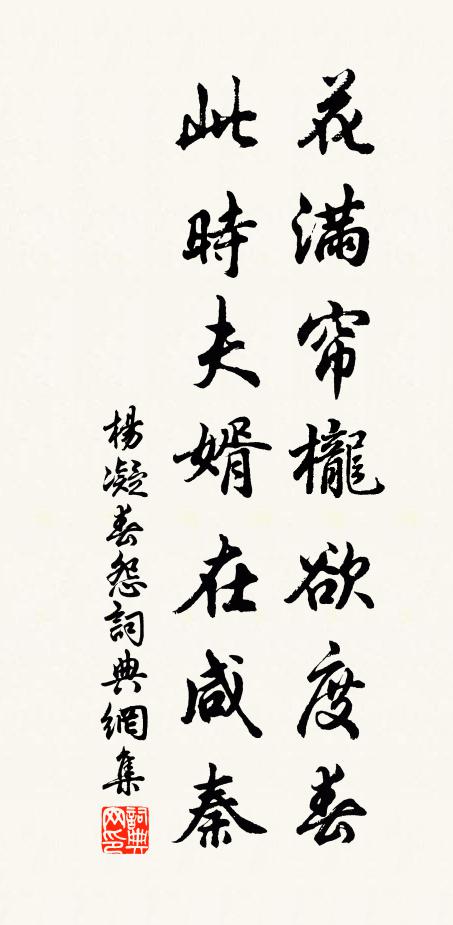 花滿帘櫳欲度春
此時夫婿在咸秦
楊凝春怨詞典網集
詞典网印